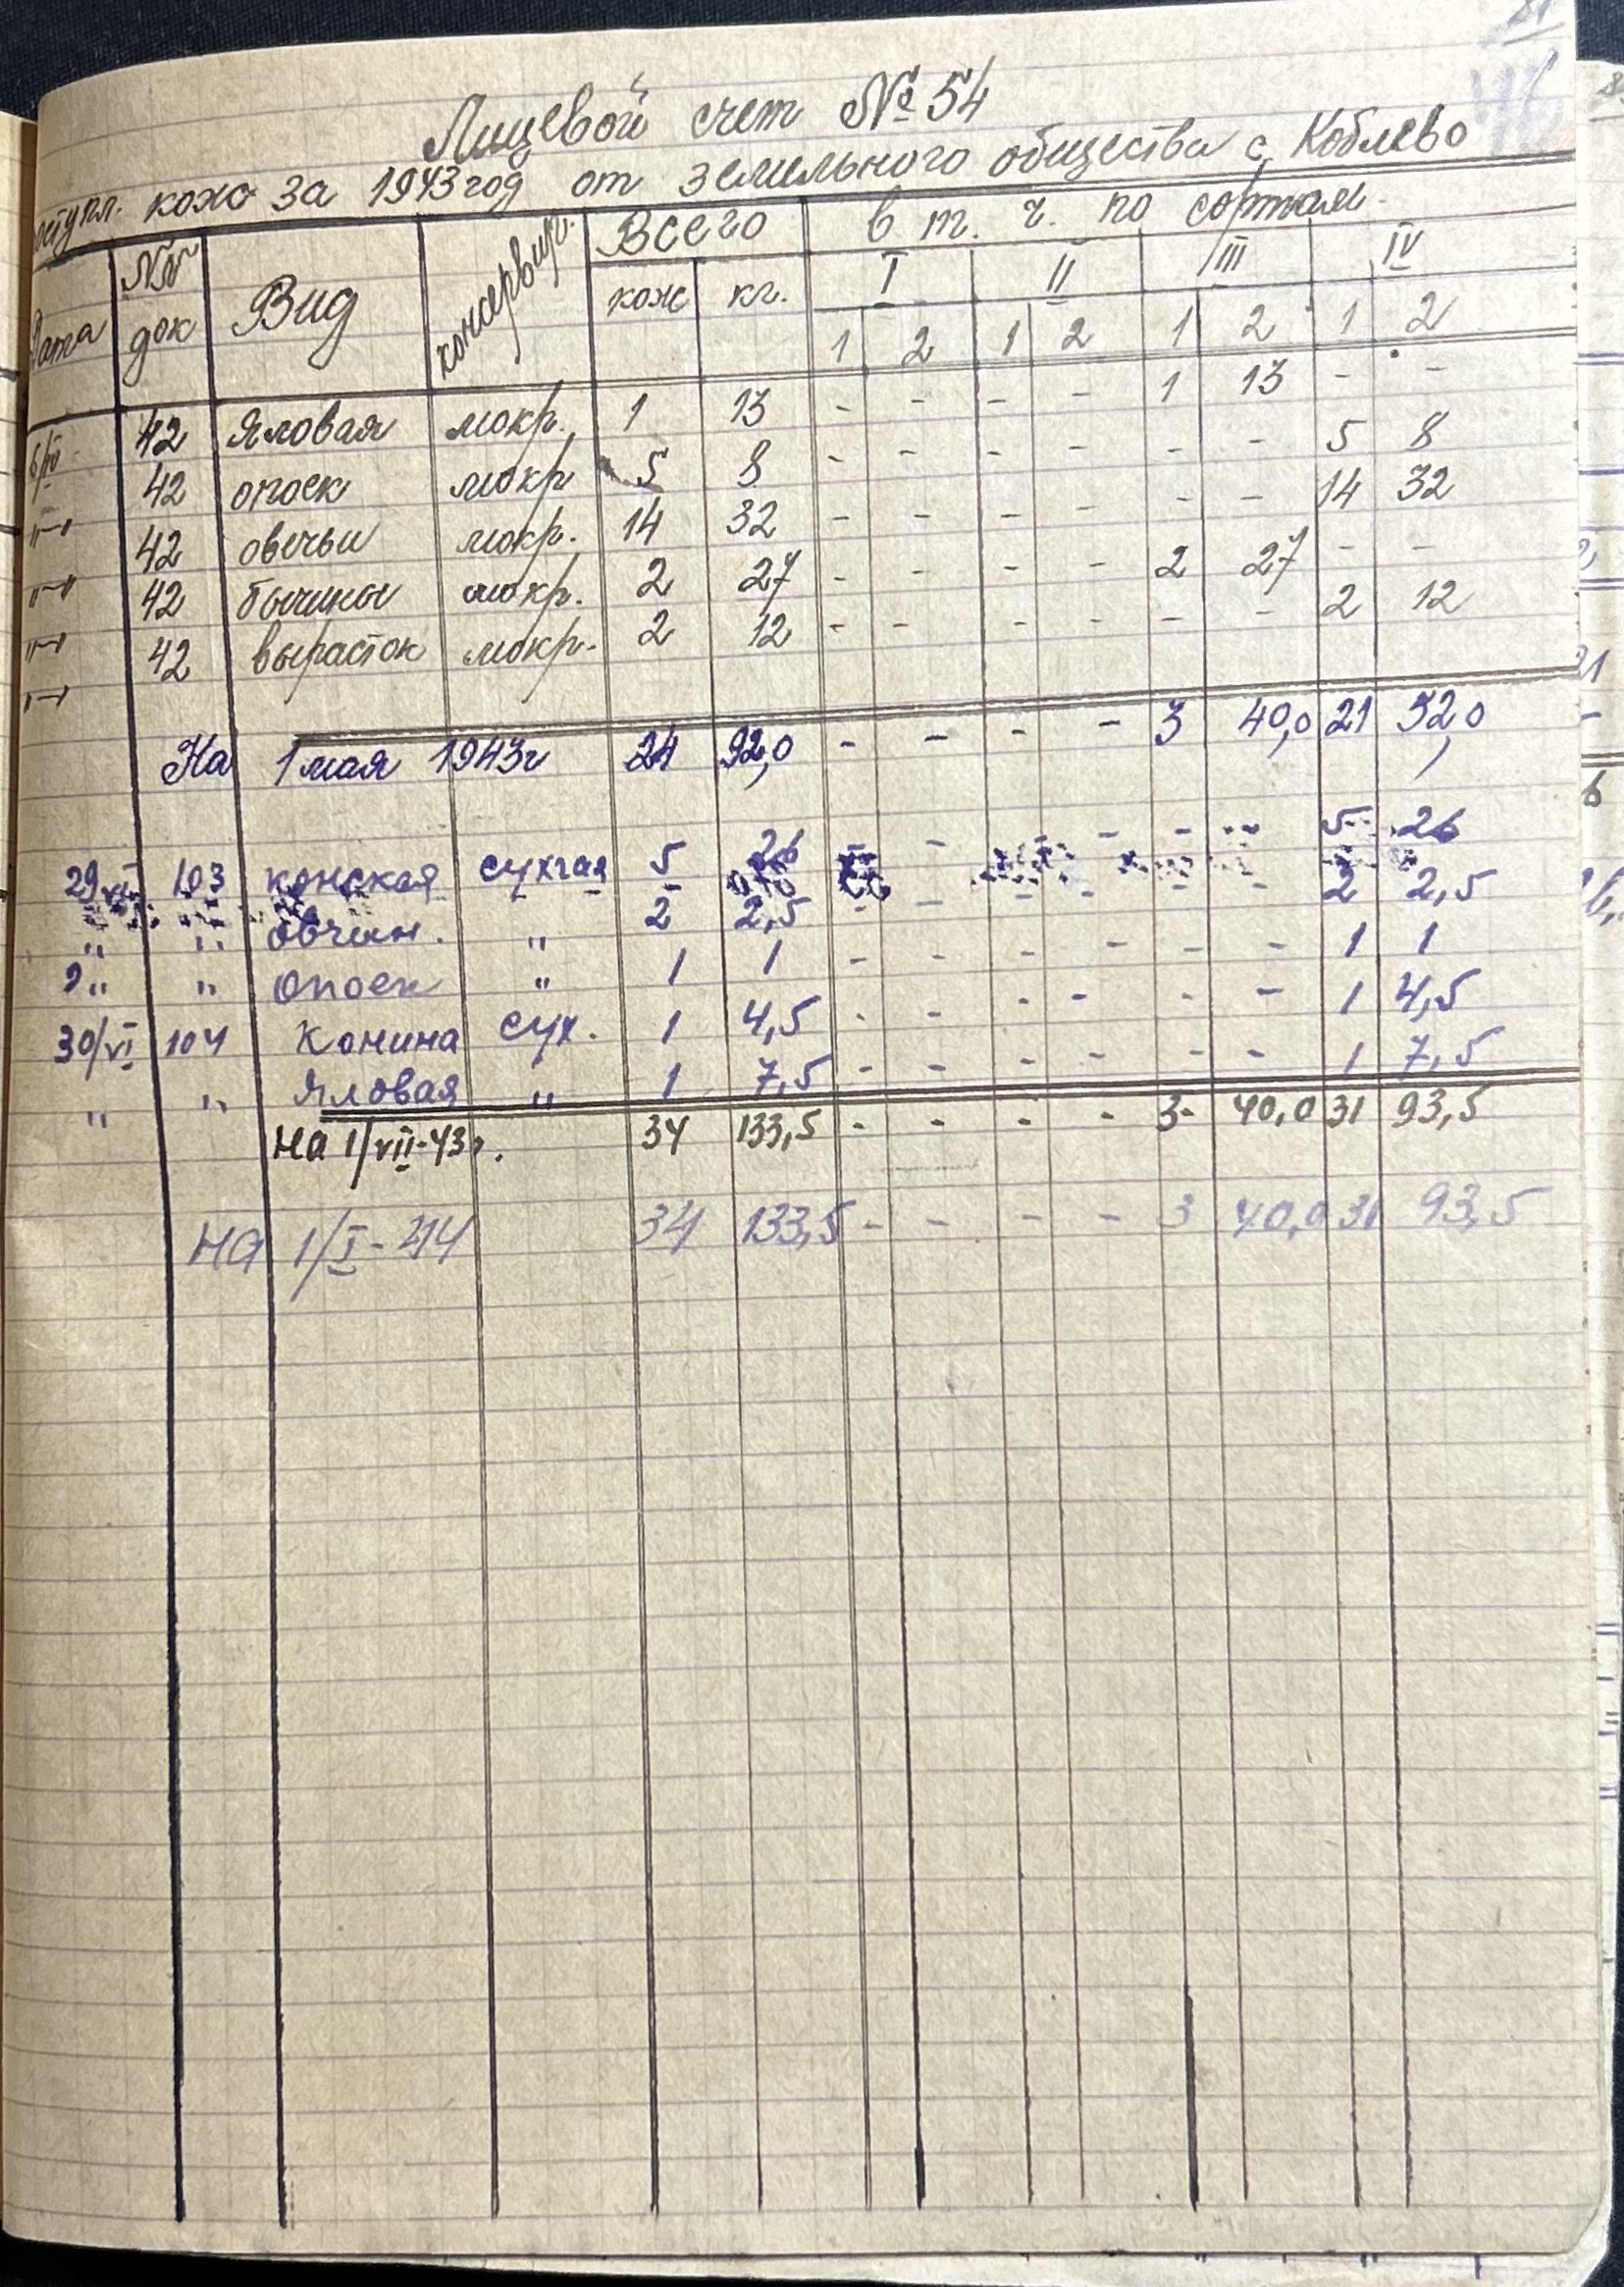 Лицевой счет № 54
оступл. кож за 1943 год от земельного общества с. Коблево
Дата №№ док Вид консервир. Всего в т. ч. по сортам
кож кг. I II III IV
1 2 1 2 1 2 1 2
6/IV 42 Яловая мокр. 1 13 - - - - 1 13 - -
"-" 42 опоек мокр 5 8 - - - - - - 5 8
"-" 42 овечьи мокр. 14 32 - - - - - - 14 32
"-" 42 бычины мокр. 2 27 - - - - 2 27 - -
"-" 42 вырасток мокр. 2 12 - - - - - - 2 12
На 1 мая 1943г 24 92,0 - - - - 3 40,0 21 52,0
29/VI 103 конская сухая 5 26 - - - - - - 5 26
" " овчин. " 2 2,5 - - - - - - 2 2,5
" " опоек " 1 1 - - - - - - 1 1
30/VI 104 Конина сух. 1 4,5 - - - - - - 1 4,5
" " Яловая " 1 7,5 - - - - - - 1 7,5
На 1/VII-43г. 34 133,5 - - - - 3 - 40,0 31 93,5
На 1/I-44 34 133,5 - - - - 3 40,0 31 93,5